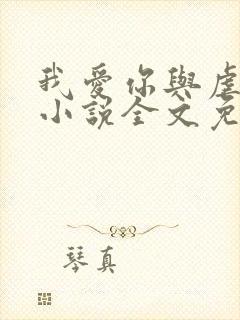 我愛你與虐
小說全文免
琴真